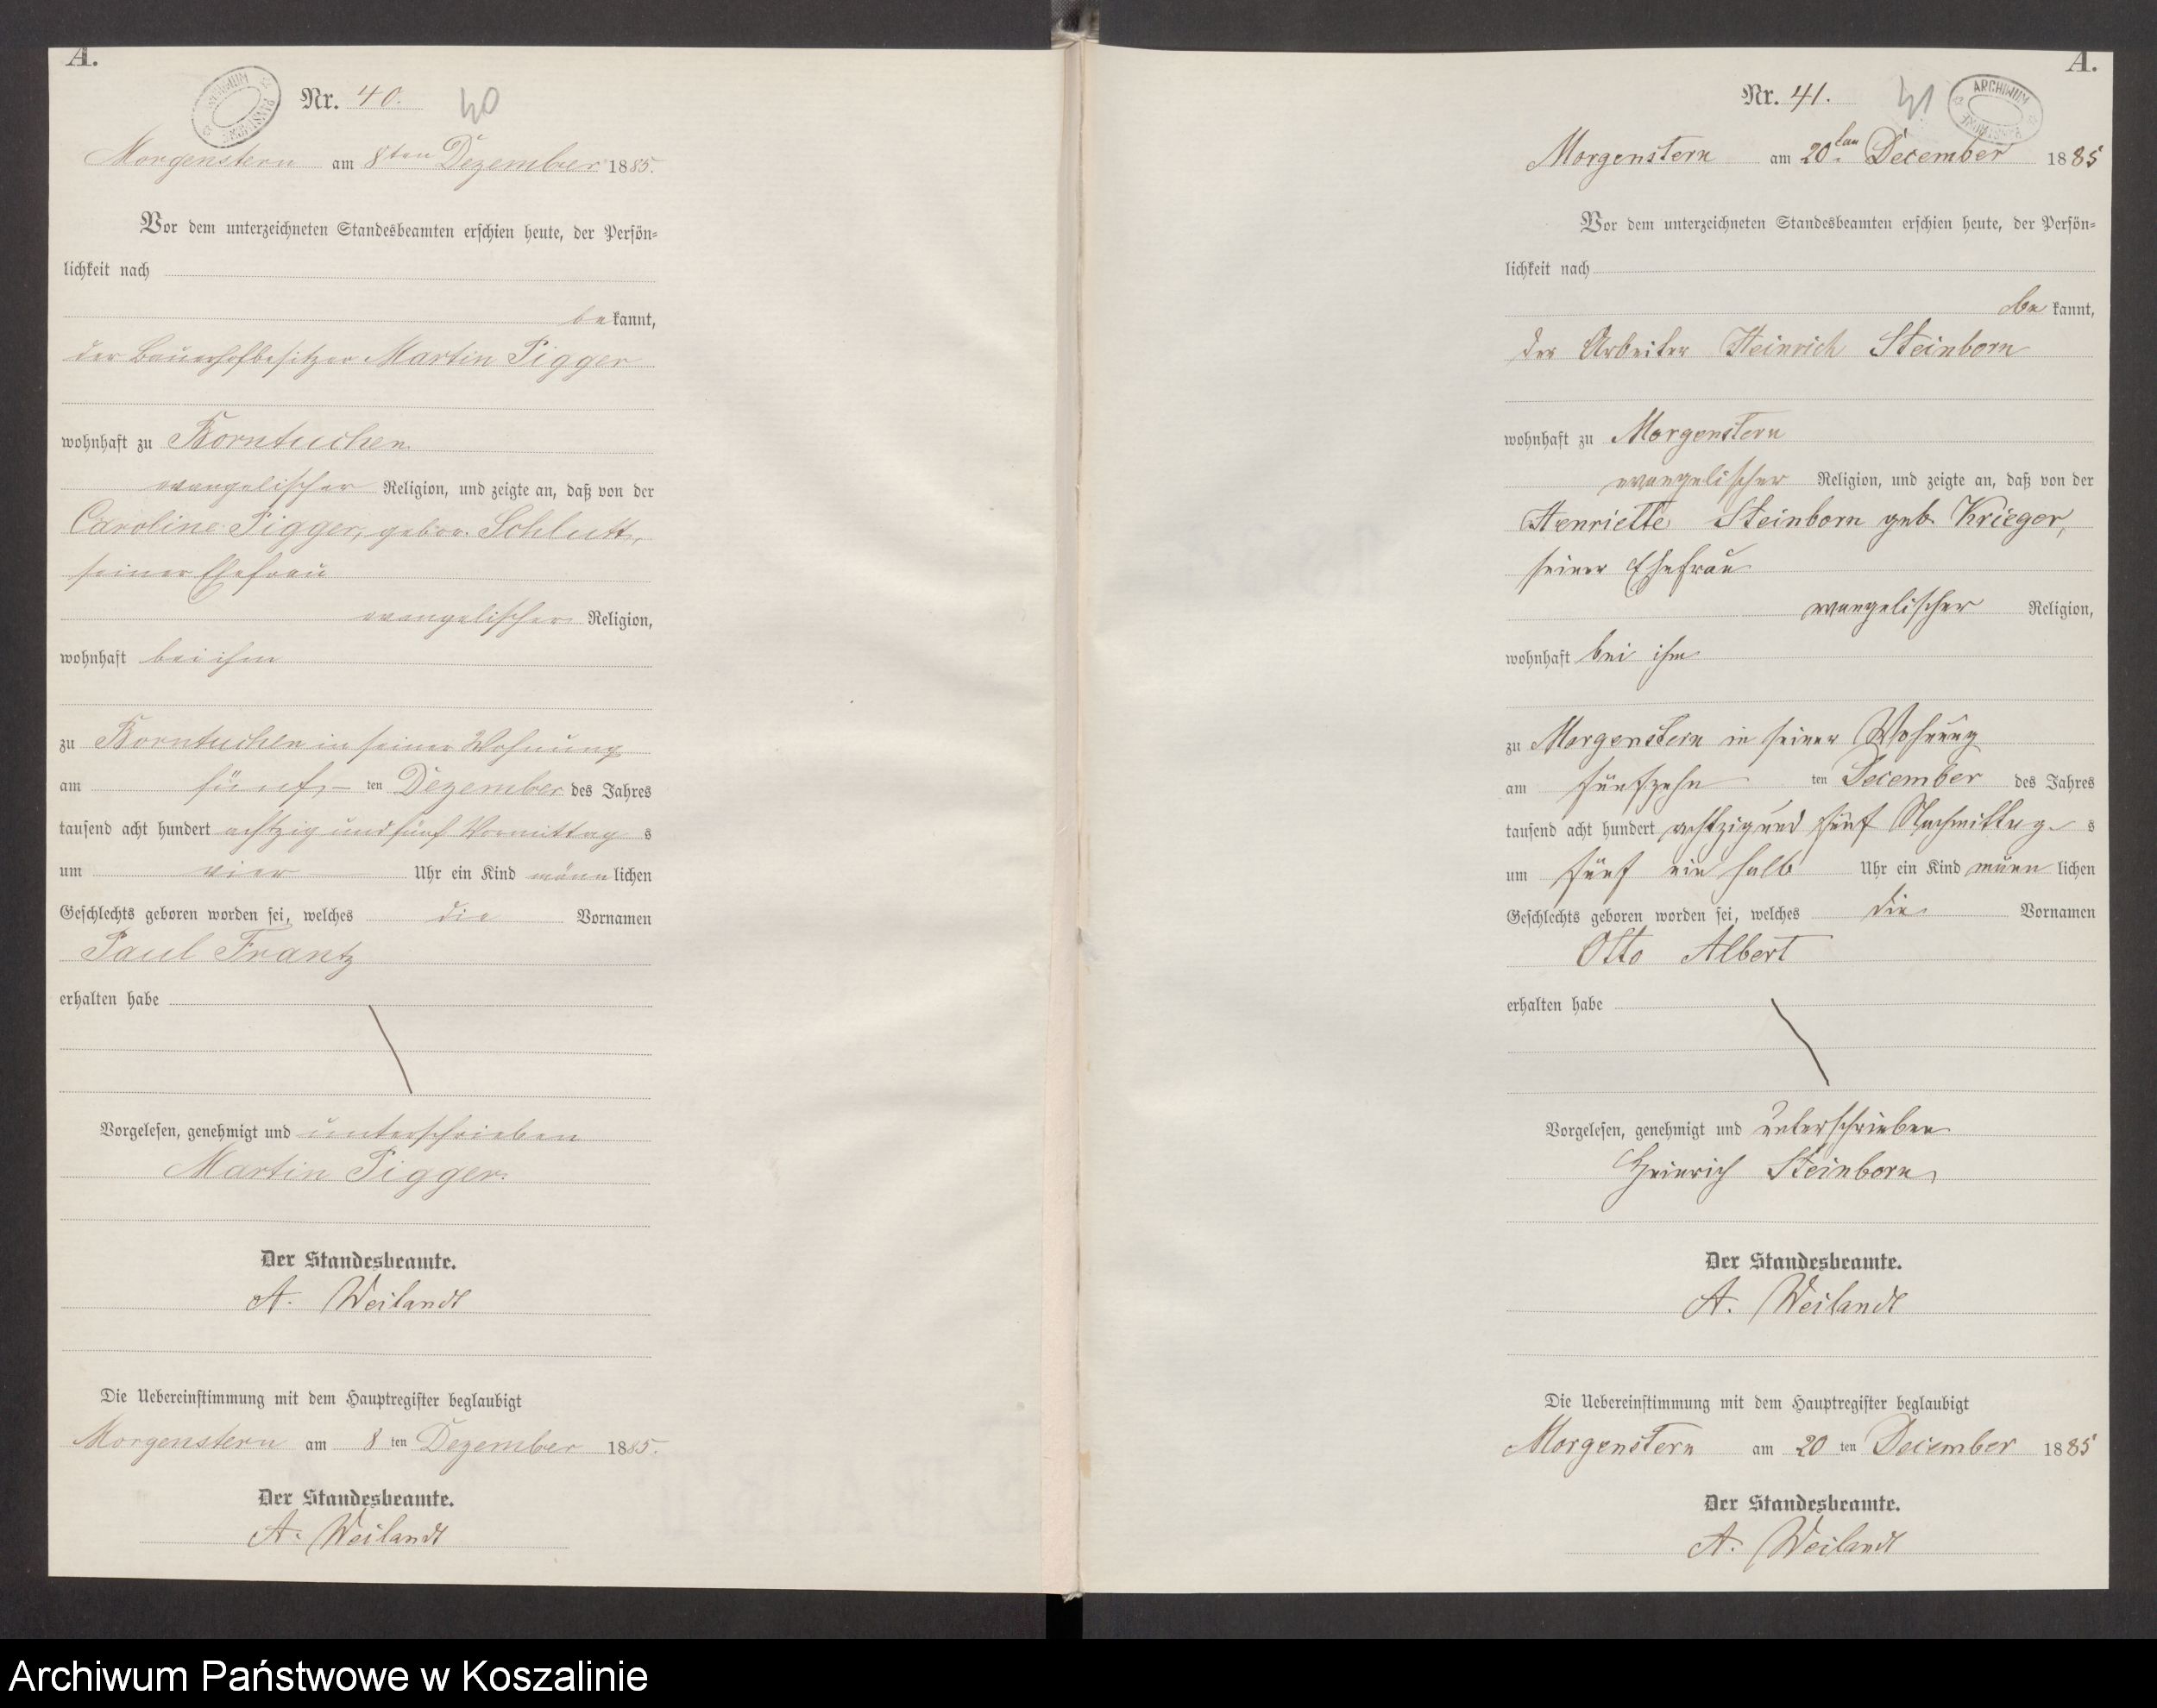 A.
Nr. 40. 40
Morgenstern am 8ten Dezember 1885.
Vor dem unterzeichneten Standesbeamten erschien heute, der Persön-
lichkeit nach
bekannt,
der Bauerhofbesitzer Martin Pigger
wohnhaft zu Borntuchen
evangelischer Religion, und zeigte an, daß von der
Caroline Pigger, gebor. Schlutt,
seiner Ehefrau
evangelischer Religion,
wohnhaft bei ihm
zu Borntuchen in seiner Wohnung
am fünf ten Dezember des Jahres
tausend acht hundert achtzig und fünf Vormittag s
um vier Uhr ein Kind männlichen
Geschlechts geboren worden sei, welches die Vornamen
Paul Frantz
erhalten habe
Vorgelesen, genehmigt und unterschrieben
Martin Pigger.
Der Standesbeamte.
A. Weilandt
Die Uebereinstimmung mit dem Hauptregister beglaubigt
Morgenstern am 8 ten Dezember 1885.
Der Standesbeamte.
A. Weilandt
A.
Nr. 41. 41
ARCHIWUM
Morgenstern am 20ten December 1885
Vor dem unterzeichneten Standesbeamten erschien heute, der Persön-
lichkeit nach
be kannt,
der Arbeiter Heinrich Steinborn
wohnhaft zu Morgenstern
evangelischer Religion, und zeigte an, daß von der
Henriette Steinborn geb. Krieger,
seiner Ehefrau
evangelischer Religion,
wohnhaft bei ihm
zu Morgenstern in seiner Wohnung
am fünfzehn ten December des Jahres
tausend acht hundert achtzig und fünf Nachmittag s
um fünf ein halb Uhr ein Kind männ lichen
Geschlechts geboren worden sei, welches die Vornamen
Otto Albert
erhalten habe
Vorgelesen, genehmigt und unterschrieben
Heinrich Steinborn
Der Standesbeamte.
A. Weilandt
Die Uebereinstimmung mit dem Hauptregister beglaubigt
Morgenstern am 20 ten December 1885
Der Standesbeamte.
A. Weilandt
Archiwum Państwowe w Koszalinie